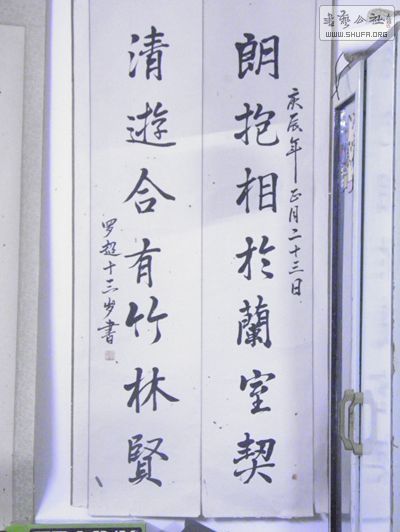 朗抱相於蘭室契
庚辰年 正月二十三日
清遊合有竹林賢
罗趈十三岁書
书艺公社
WWW.SHUFA.ORG